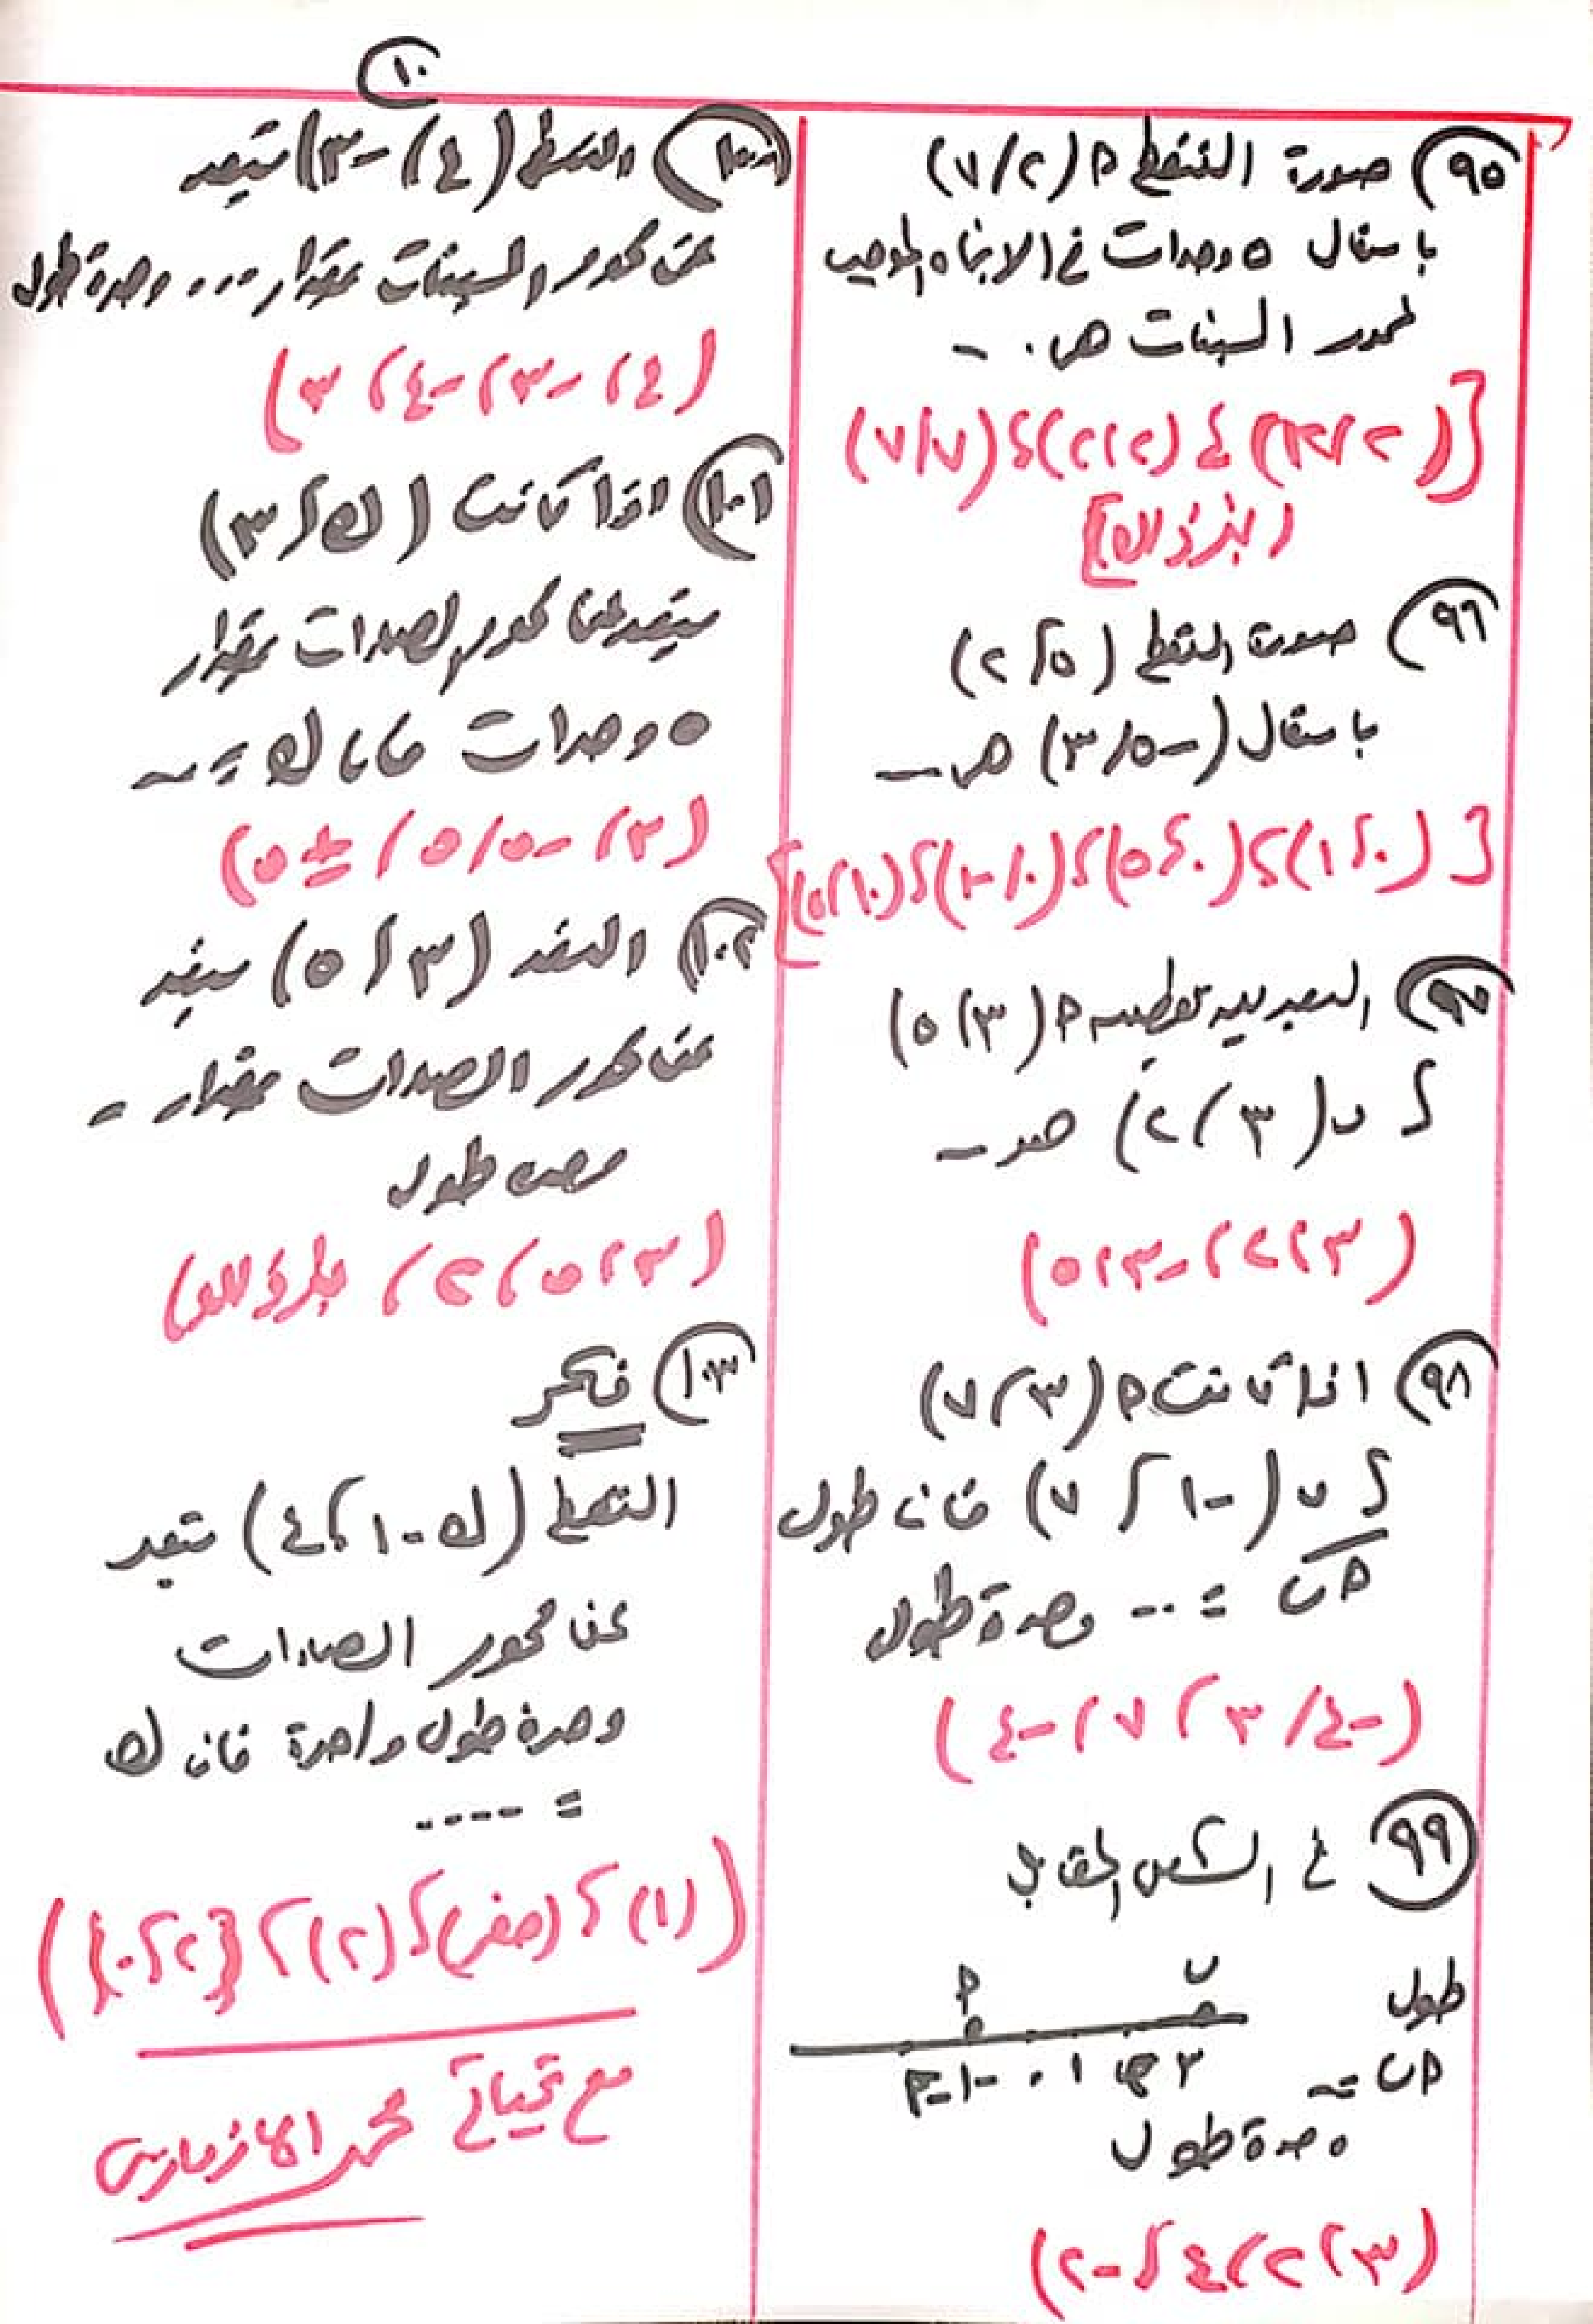 ١٠
٩٥) صورة النقطة P (٢/٧)
بانتقال ٥ وحدات في الاتجاه الموجب
لمحور السينات هى . -
[(٢،١٢) ؛ (٢،٢) ؛ (٧،٧)
٩٦) صورة النقطة (٥،٢)
بانتقال (-٥،٣) هى -
[(٠،١) ؛ (٠،٥) ؛ (٠،-١) ؛ (١٠،٥)]
٩٧) البعد بين نقطتين P (٣،٥)
؛ ب (٣،٢) هو -
(٣، ٢، -٣، ٥)
٩٨) اذا كانت P (٣،٧)
؛ ب (-١، ٧) فان طول
P ب = ... وحدة طول
(-٤، ٣، ٧، -٤)
٩٩) في الشكل المقابل
P ب
-٢ -١ ٠ ١ ٢ ٣
طول
P ب =
وحدة طول
(٣، ٢، ٤، -٢)
١٠٠) النقطة (٤، -٣) تبعد
عن محور السينات بمقدار ... وحدة طول
(٤، -٣، -٤، ٣)
١٠١) اذا كانت (ك، ٣)
تبعد عن محور الصادات بمقدار
٥ وحدات فان ك = -
(٣، -٥، ٥، ± ٥)
١٠٢) البعد (٣، ٥) يبعد
عن محور الصادات بمقدار -
وحدة طول
(٣، ٥، ٢،
١٠٣) فكر
النقطة (ك - ١، ٤) تبعد
عن محور الصادات
وحدة طول واحدة فان ك
= ....
((١) ؛ (صفر) ؛ (٢) ؛ {٢، ٠})
مع تحياتي